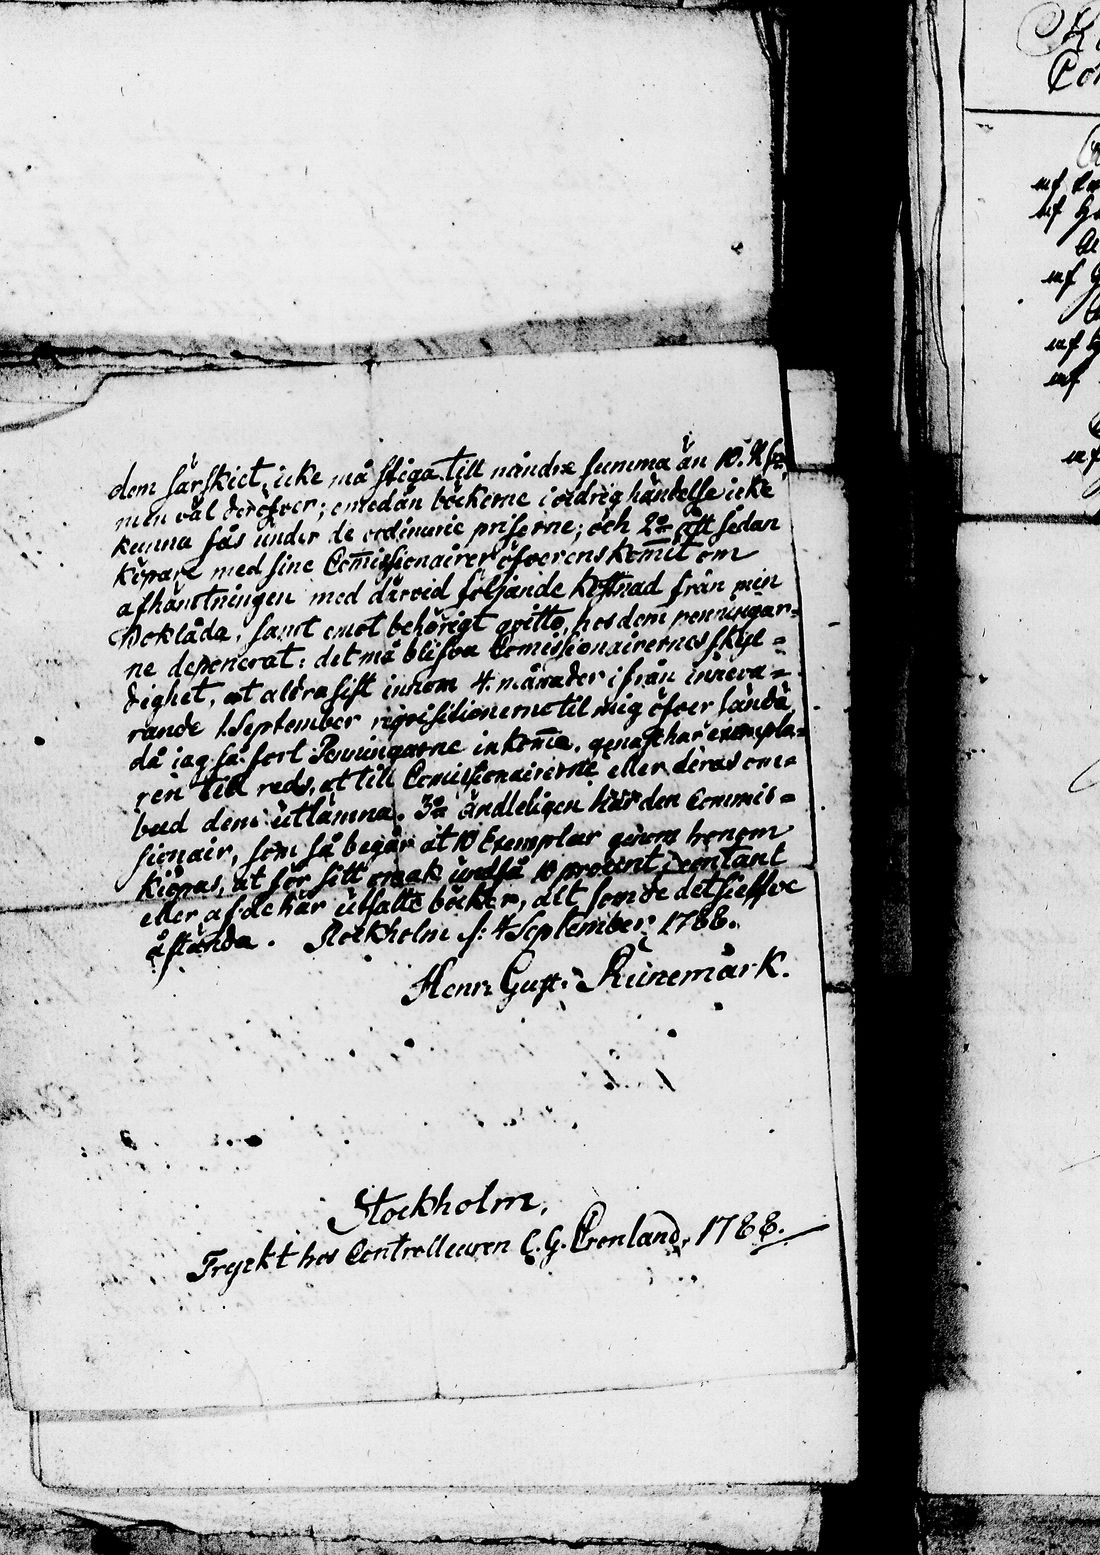 dem särskiet, icke må stiga till mindre summa än 10. R sr,
men väl deröfver; emedan böckerne i vidrig händelse icke
kunna fås under de ordinarie priserne; och 2:o att sedan
köpare med sine Com̄issionairer öfverenskom̄it om
afhämtningen med därvid följande kostnad från min
Boklåda, samt emot behörigt qvitto, hos dem penningar=
ne deponerat: det må blifva Comissionairernes skyl=
dighet, at aldrasist innom 4. månader ifrån inneva=
rande 1. September reqvisitionerne til mig öfver sända,
då jag så fort Penningarne inkom̄a, genast har exempla=
ren till reds, at till Comissionairerne eller deras om=
bud dem utlämna. 3:o ändteligen har den Commis=
sionair, som så begär at 10 Exemplar genom honom
kiöpas, at för sitt omak undfå 10 procent i contant
eller af de här utsatte böcker, alt som de det sielfve
åstunda. Stockholm d: 4 September 1788.
Henr: Gust: Runemark.
Stockholm,
Tryckt hos Controlleuren C. G. Cronland, 1788.
K
Con
uf
uf
uf
uf
uf
uf